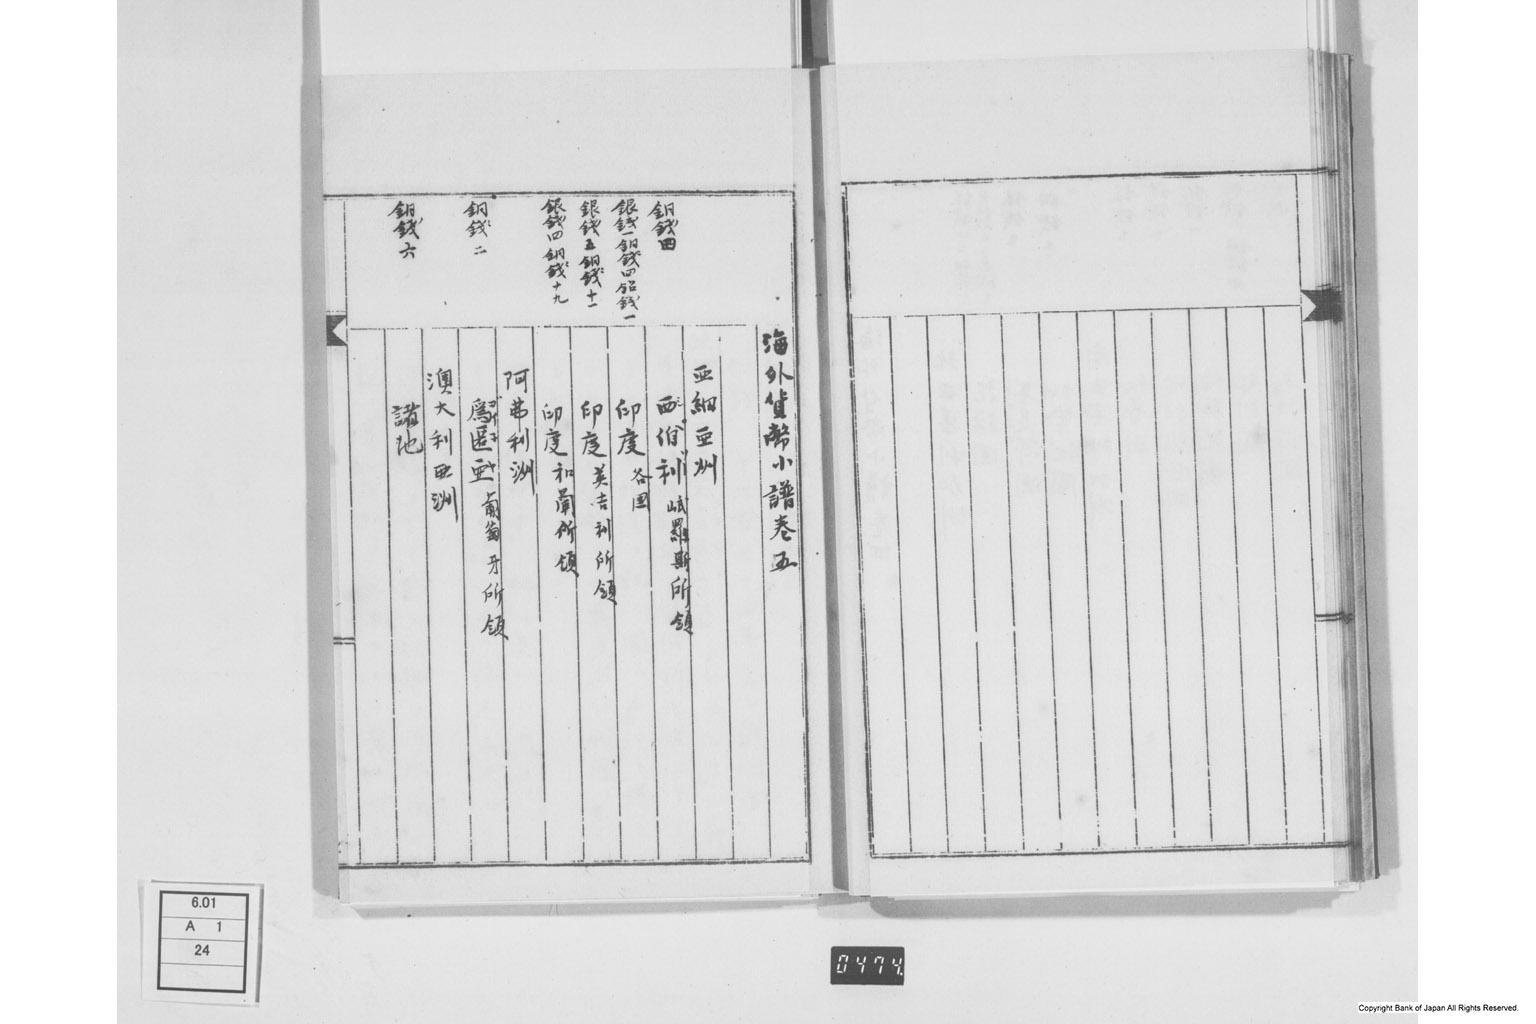 海外貨幣小譜巻五
亞細亞洲
銅錢四
西伯利 峨羅斯所領
銀錢一銅錢四鉛錢一
印度 各国
銀錢五銅錢十一
印度 英吉利所領
銀錢四銅錢十九
印度 和蘭所領
阿弗利洲
銅錢二
匿亞 葡萄牙所領
澳大利亜洲
銅錢六
諸地
6.01
A 1
24
0474
Copyright Bank of Japan All Rights Reserved.